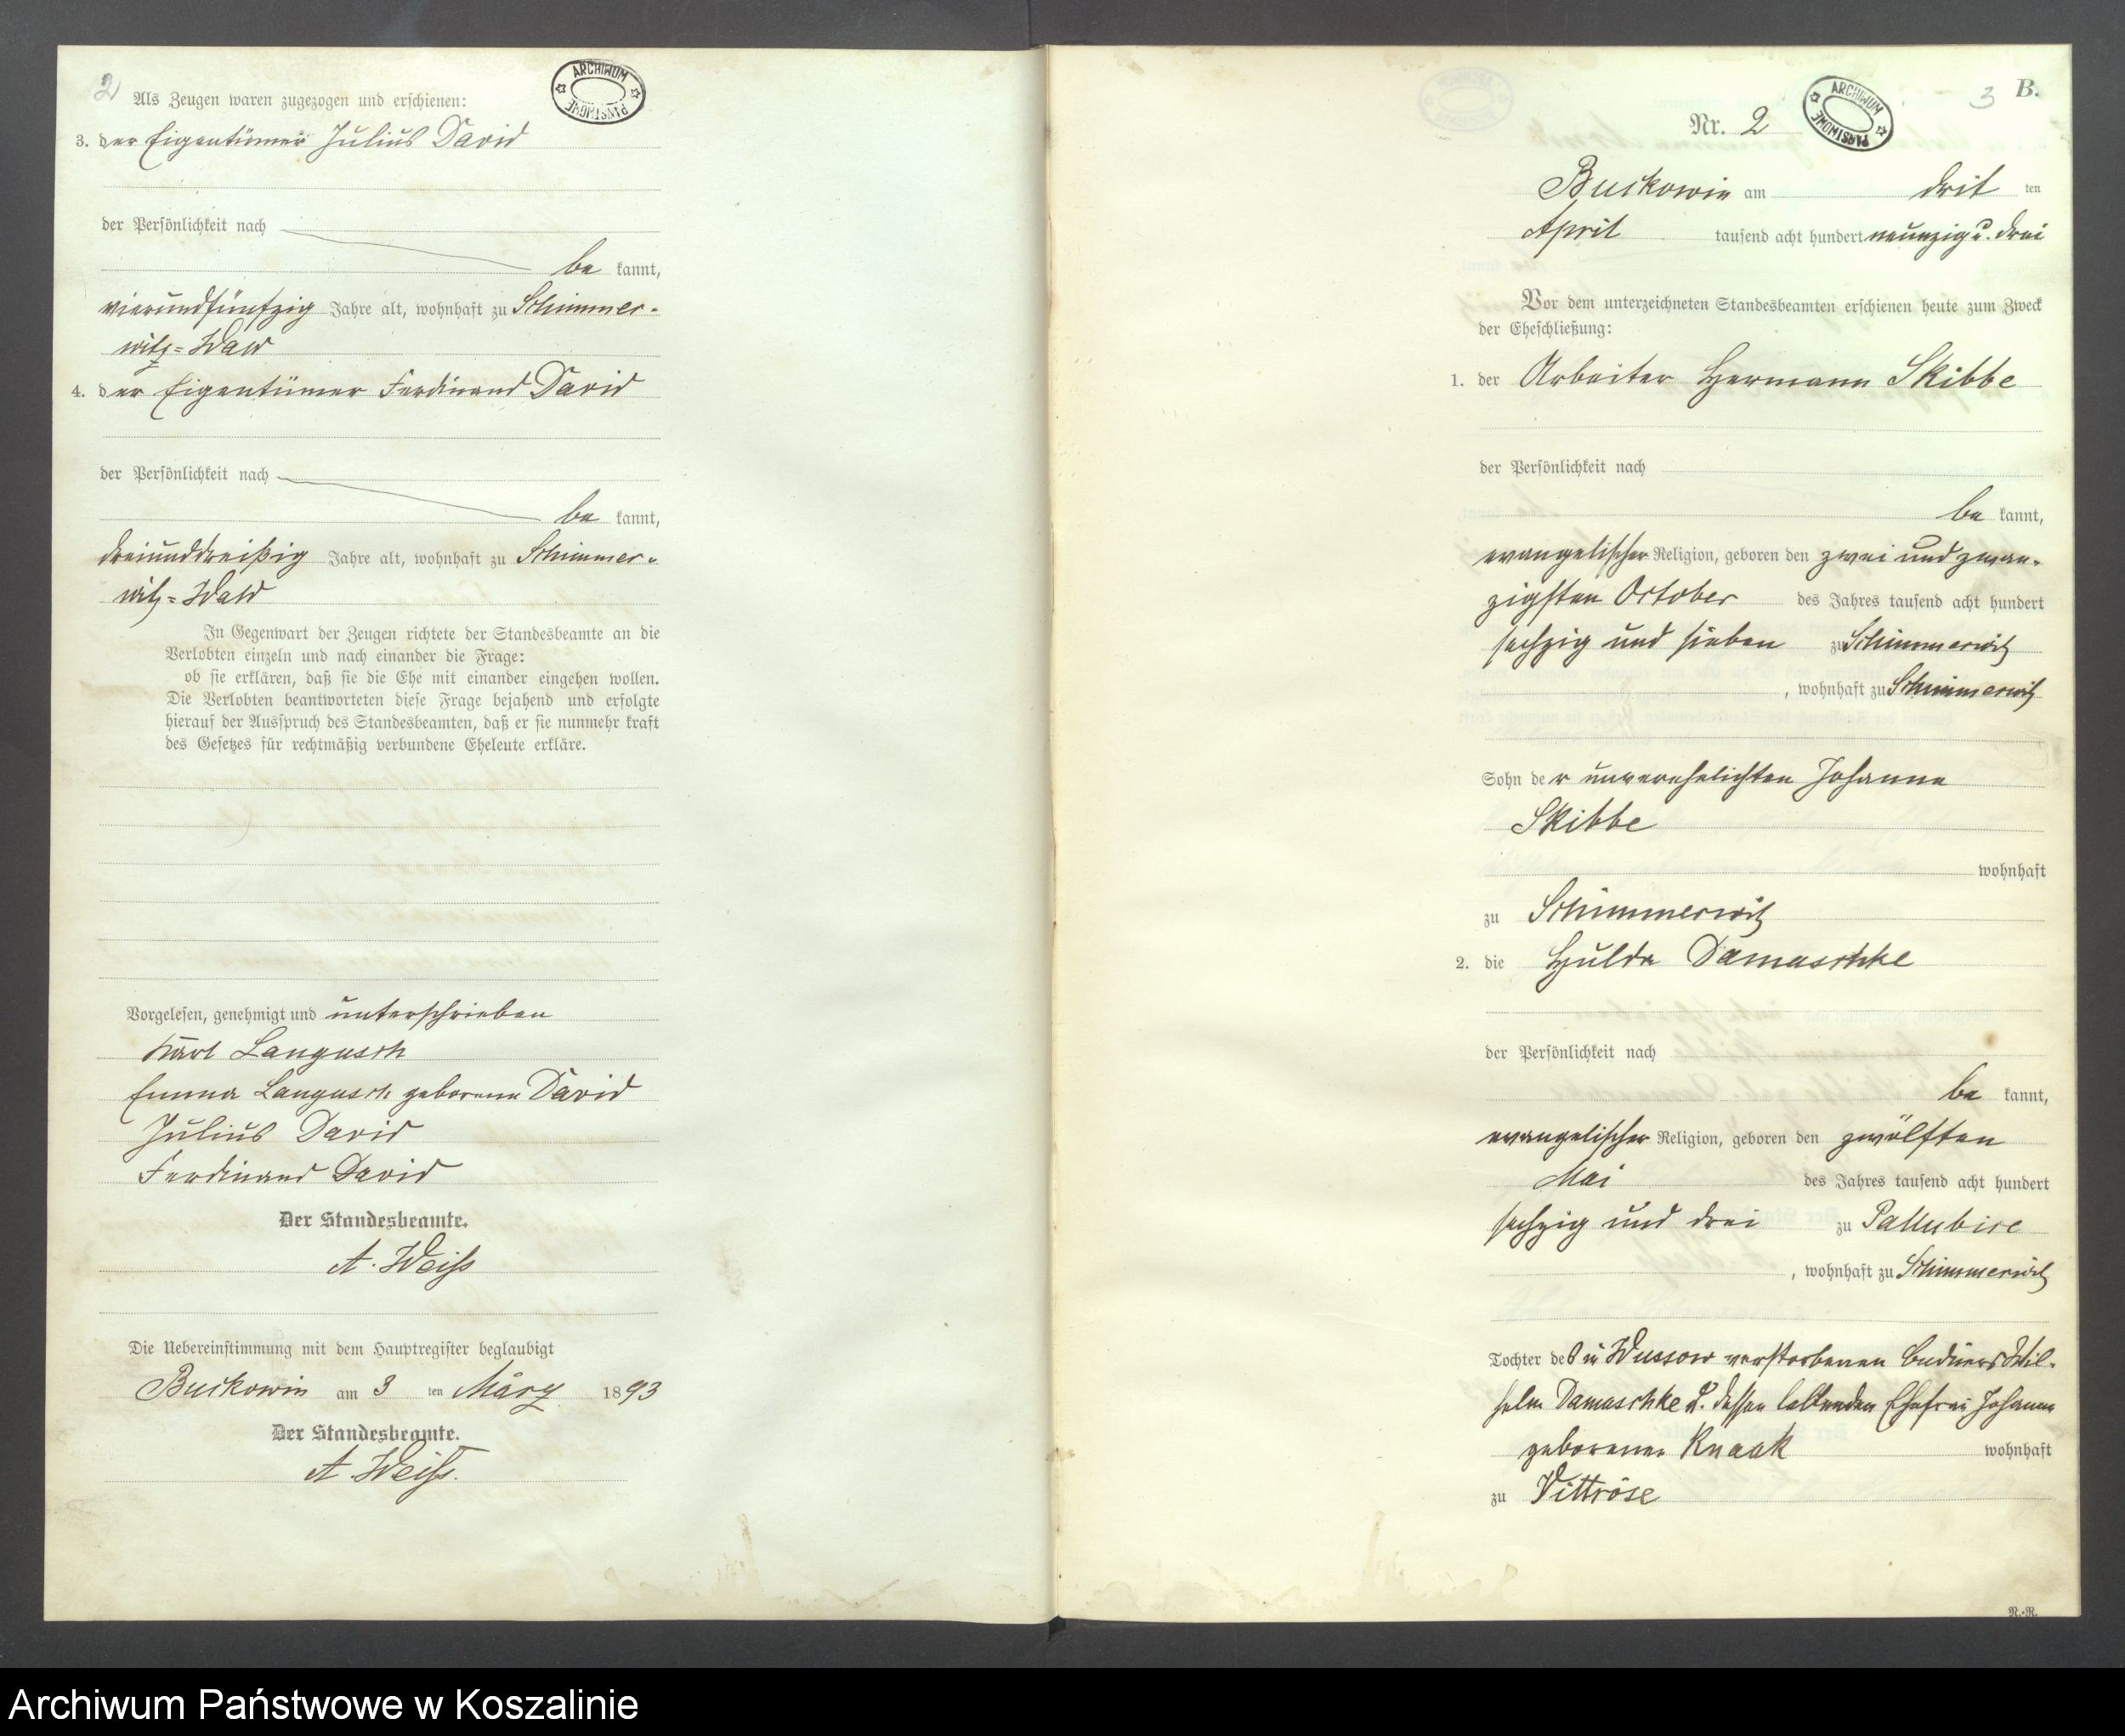 2
Als Zeugen waren zugezogen und erschienen:
ARCHIWUM PAŃSTWOWE
3. der Eigentümer Julius David
der Persönlichkeit nach
be kannt,
vierundfünfzig Jahre alt, wohnhaft zu Schimmer-
witz-Wald
4. der Eigentümer Ferdinand David
der Persönlichkeit nach
be kannt,
dreiunddreißig Jahre alt, wohnhaft zu Schimmer-
witz-Wald
In Gegenwart der Zeugen richtete der Standesbeamte an die
Verlobten einzeln und nach einander die Frage:
ob sie erklären, daß sie die Ehe mit einander eingehen wollen.
Die Verlobten beantworteten diese Frage bejahend und erfolgte
hierauf der Ausspruch des Standesbeamten, daß er sie nunmehr kraft
des Gesetzes für rechtmäßig verbundene Eheleute erkläre.
Vorgelesen, genehmigt und unterschrieben
Karl Langusch
Emma Langusch geborene David
Julius David
Ferdinand David
Der Standesbeamte.
A. Weiß
Die Uebereinstimmung mit dem Hauptregister beglaubigt
Buckowin am 3 ten März 1893
Der Standesbeamte.
A. Weiß.
B.
3
Nr. 2
ARCHIWUM PAŃSTWOWE
Buckowin am drit ten
April tausend acht hundert neunzig u. drei
Vor dem unterzeichneten Standesbeamten erschienen heute zum Zweck
der Eheschließung:
1. der Arbeiter Hermann Skibbe
der Persönlichkeit nach
be kannt,
evangelischer Religion, geboren den zwei und zwan-
zigsten October des Jahres tausend acht hundert
sechzig und sieben zu Schimmerwitz
, wohnhaft zu Schimmerwitz
Sohn der unverehelichten Johanne
Skibbe
wohnhaft
zu Schimmerwitz
2. die Hulda Damaschke
der Persönlichkeit nach
be kannt,
evangelischer Religion, geboren den zwölften
Mai des Jahres tausend acht hundert
sechzig und drei zu Pallubice
, wohnhaft zu Schimmerwitz
Tochter des in Wussow verstorbenen Büdners Wil-
helm Damaschke u. dessen lebenden Ehefrau Johanne
geborenen Knaak wohnhaft
zu Vittröse
N.-R.
Archiwum Państwowe w Koszalinie